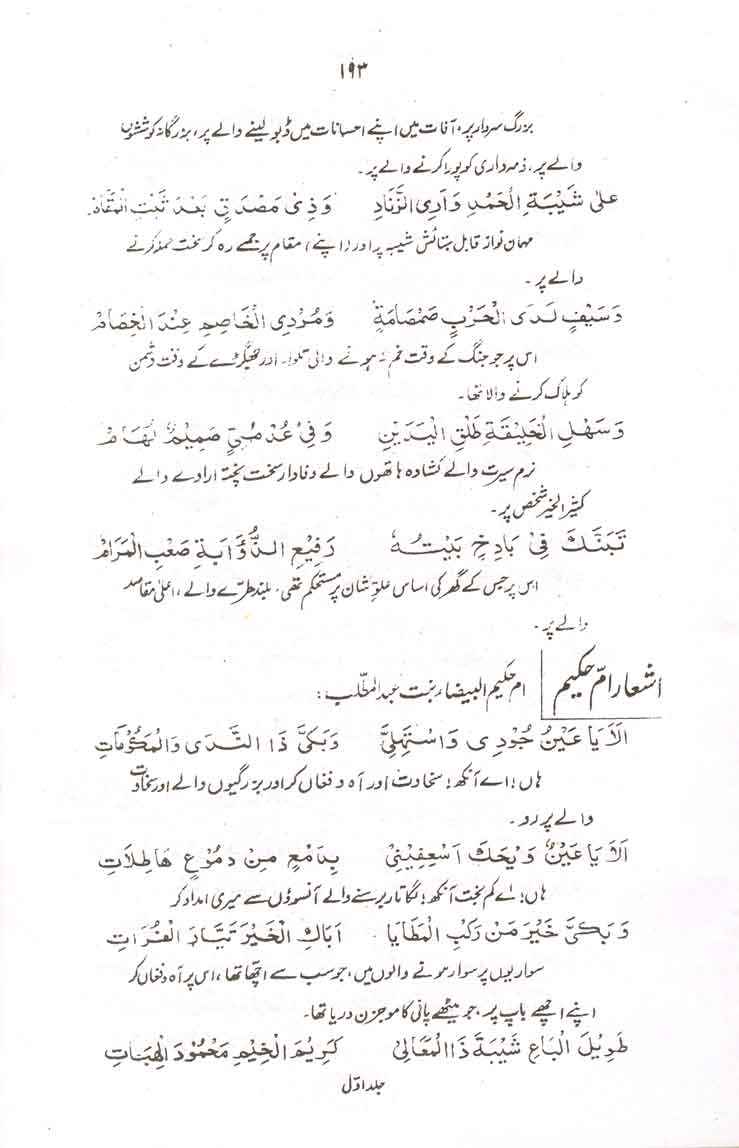 ۱۹۳
بزرگ سردار پر، آفات میں اپنے احسانات میں ڈبو لینے والے پر، بزرگانہ کوششوں
والے پر، ذمہ داری کو پورا کرنے والے پر۔
عَلیٰ شَيْبَةِ الْحَمْدِ وَارِی الزِّنَادِ وَذِیْ مَصْدَقٍ بَعْدَ ثَبْتِ الْمَقَامِ
مہمان نواز قابل ستائش شیبہ پر اور (اپنے) مقام پر جمے رہ کر سخت حملہ کرنے
والے پر۔
وَسَيْفٍ لَدَی الْحَرْبِ صَمْصَامَةٍ وَمُرْدِی الْمخَاصِمِ عِنْدَ الْخِصَامِ
اس پر جو جنگ کے وقت خم نہ ہونے والی تلوار اور جھگڑے کے وقت دشمن
کو ہلاک کرنے والا تھا۔
وَسَهْلِ الْخَلِيْقَةِ طَلْقِ الْيَدَيْنِ وَفِیْ عُدْمُلِیٍّ صَمِيْمٍ لُهَامْ
نرم سیرت والے کشادہ ہاتھوں والے وفادار سخت پختہ ارادے والے
کثیر الخیر شخص پر۔
تَبَنَّكَ فِیْ بَاذِخٍ بَيْتُهٗ رَفِيْعِ الذُّؤَابَةِ صَعْبِ الْمَرَامْ
اس پر جس کے گھر کی اساس علوِّ شان پر مستحکم تھی، بلند طرّے والے، اعلیٰ مقاصد
والے پر۔
اشعار امّ حکیم
ام حکیم البیضاء بنت عبد المطّلب:
اَلَا يَا عَيْنُ جُوْدِیْ وَاسْتَهِلِّیْ وَبَكِّیْ ذَا النَّدَی وَالْمَكْرُمَاتِ
ہاں! اے آنکھ! سخاوت اور آہ و فغاں کر اور بزرگیوں والے اور سخاوت
والے پر رو۔
اَلَا يَا عَيْنُ وَيْحَكِ اَسْعِفِيْنِیْ بِدَمْعٍ مِنْ دُمُوْعٍ هَاطِلَاتِ
ہاں! اے کم بخت آنکھ! لگاتار برسنے والے آنسوؤں سے میری امداد کر
وَبَكِّیْ خَيْرَ مَنْ رَكِبَ الْمَطَايَا اَبَاكِ الْخَيْرَ تَيَّارَ الْفُرَاتِ
سواریوں پر سوار ہونے والوں میں، جو سب سے اچھا تھا، اس پر آہ و فغاں کر
اپنے اچھے باپ پر، جو میٹھے پانی کا موجزن دریا تھا۔
طَوِيْلَ الْبَاعِ شَيْبَةَ ذَا الْمَعَالِیْ كَرِيْمَ الْخِيْمِ مَحْمُوْدَ الْهِبَاتِ
جلد اوّل